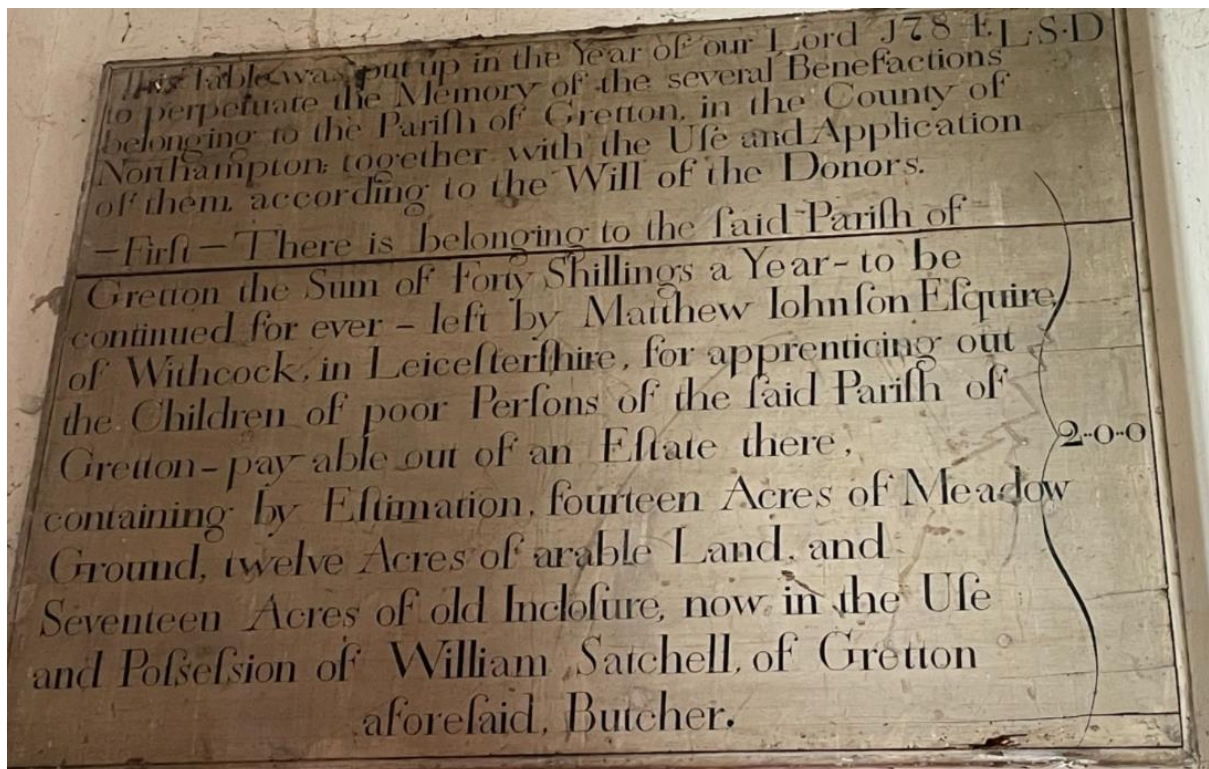 This Table was put up in the Year of our Lord 178 L·S·D
to perpetuate the Memory of the several Benefactions
belonging to the Pariſh of Gretton, in the County of
Northampton; together with the Uſe and Application
of them, according to the Will of the Donors.
—Firſt—There is belonging to the ſaid Pariſh of
Gretton the Sum of Forty Shillings a Year – to be
continued for ever – left by Matthew Iohnſon Eſquire,
of Withcock, in Leiceſterſhire, for apprenticing out
the Children of poor Perſons of the ſaid Pariſh of
Gretton – pay able out of an Eſtate there,
2-0-0
containing by Eſtimation, fourteen Acres of Meadow
Ground, twelve Acres of arable Land, and
Seventeen Acres of old Incloſure, now in the Uſe
and Poſseſsion of William Satchell, of Gretton
aforeſaid, Butcher.